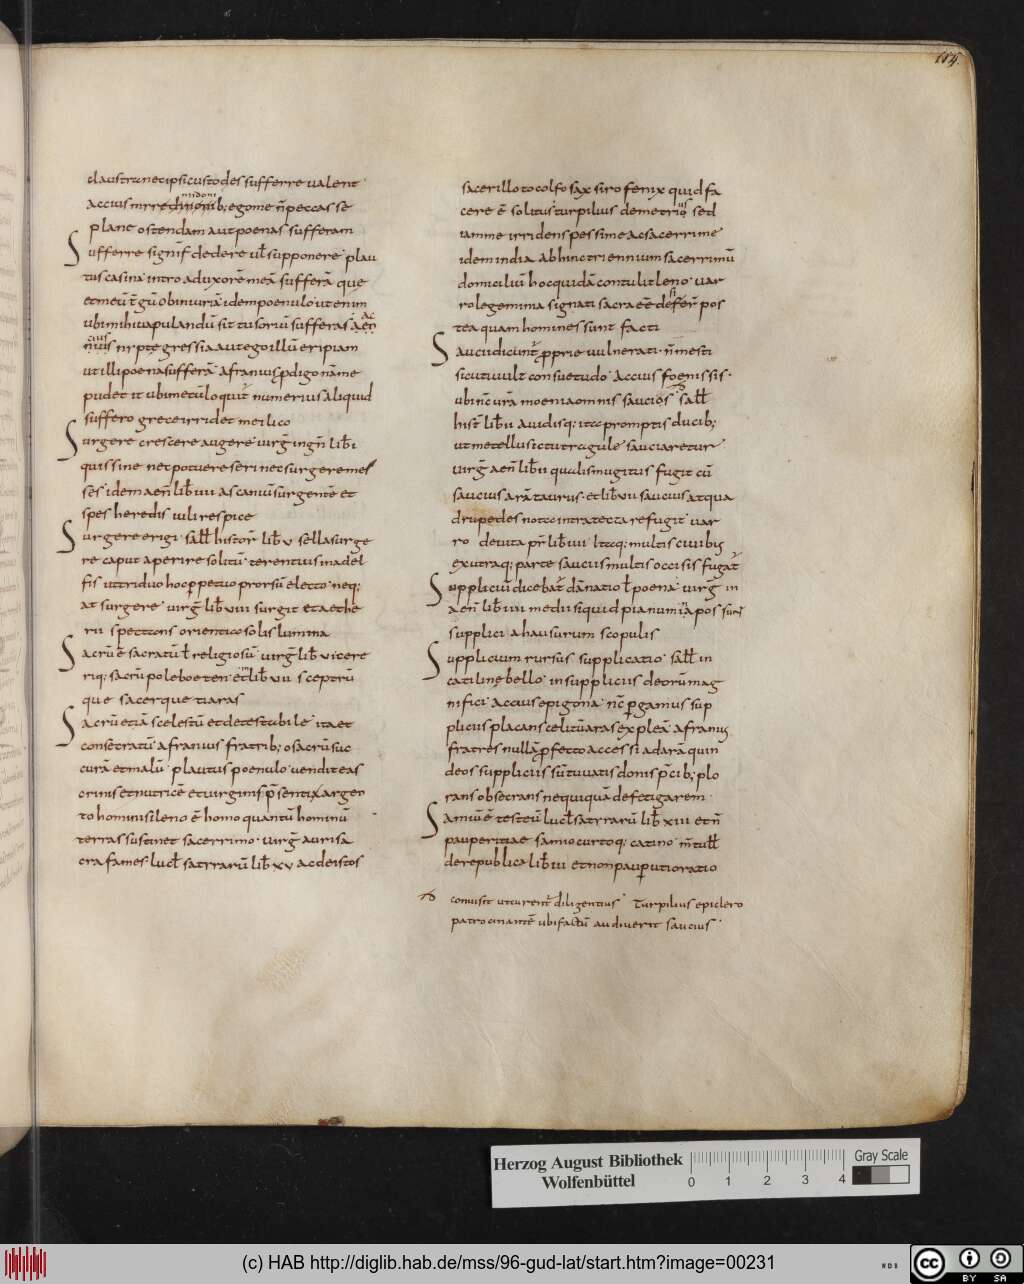 114.
claustra nec ipsi custodes sufferre valent
accius mirrechionib; egome n̄ peccas se
midoni
plane ostendam aut poenas sufferam
Sufferre signif̄ dedere ul̄ supponere plau
tus casina intro aduxorē meā sufferā que
et meū t̄gū ob iniuriā idem poenulo ut enim
ubi mihi uapulandū sit tu soriū sufferas
ut illi poenas sufferā afranius p̄digo nāme
pudet it ubi mecū loquit̄ numerius aliquid
suffero grece irridet me ilico
Surgere crescere augere uirḡ in gn̄ lib̄ i
quis sine nec potuere seri nec surgere mes
ses idem aen̄ lib̄ iiii ascaniū surgentē et
spes heredis iuli respice
Surgere erigi sall̄ histor̄ lib̄ v sella surge
re caput aperire solitū terentius in adel
fis ut triduo hoc perpetuo prorsū e lecto neq;
at surgere uirḡ lib̄ viii surgit et aethe
rii spectans orientia solis lumina
Sacrū ē sacratū ł religiosū uirḡ lib̄ vi cere
riq; sacrū poleboeten et lib̄ vii sceptrū
que sacerque tiaras
Sacrū etiā scelestū et detestabile ita et
consecratū afranius fratrib; o sacrū suc
curā et malū plautus poenulo uendit eas
omnis et nutricē et uirginis p̄sentix argen
to homini si leno ē homo quantū hominū
terras sustinet sacerrimo uirḡ auri sa
cra fames lucł satrrarū lib̄ xv ac de istos
sacer illo tocolfo sax siro fenix quid fa
cere ē solitus turpilius demetrio sed
us
iamne irridens pessime ac sacerrime
idem india abhinc triennium sacerrimū
domiciliū hoc quidā contulit leno uar
ro legem mia signati sacra eē defer̄ pos
si
tea quam homines sunt facti
Saucii dicunt̄ p̄prie uulnerati n̄ mesti
sicuti uult consuetudo accius foenissis
ubi nc̄ urā moenia omnis saucios sall̄
hist̄ lib̄ ii auidisq; ita promptis ducib;
ut metellus ictu tragule sauciaretur
uirḡ aen̄ lib̄ ii qualis mugitus fugit cū
saucius arā taurus et lib̄ vii saucius at qua
drupedes nota intra tecta refugit uar
ro de uita pr̄ lib̄ iiii itaq; multis ciuibus
ex utraq; parte sauciis multis occisis fugat̄
Suppliciū dicebat̄ dānatio ł poena uirḡ in
aen̄ lib̄ iiii mediis si quid pia numina pos sunt
supplici a hausurum scopulis
Supplicium rursus supplicatio sall̄ in
catiline bello in suppliciis deorū mag
nifici accius epigona nc̄ pergamus sup
pliciis placans celitū aras explea afranius
fratres nullā perfecto accessi ad arā quin
deos suppliciis sūtuuatis donis p̄cib; plo
rans obsecrans nequiquā defetigarem
Samiū ē testeū lucł satrrarū lib̄ xiii et n̄
pauperitiae samio curtoq; catino m̄ tull̄
de republica lib̄ vi et non pauper uti oratio
conuisit ut curent̄ diligentius Turpilius epiclero
patrocinantē ubi factū audiuerit saucius
Herzog August Bibliothek
Wolfenbüttel
0 1 2 3 4
Gray Scale
(c) HAB http://diglib.hab.de/mss/96-gud-lat/start.htm?image=00231
WDB
cc BY SA